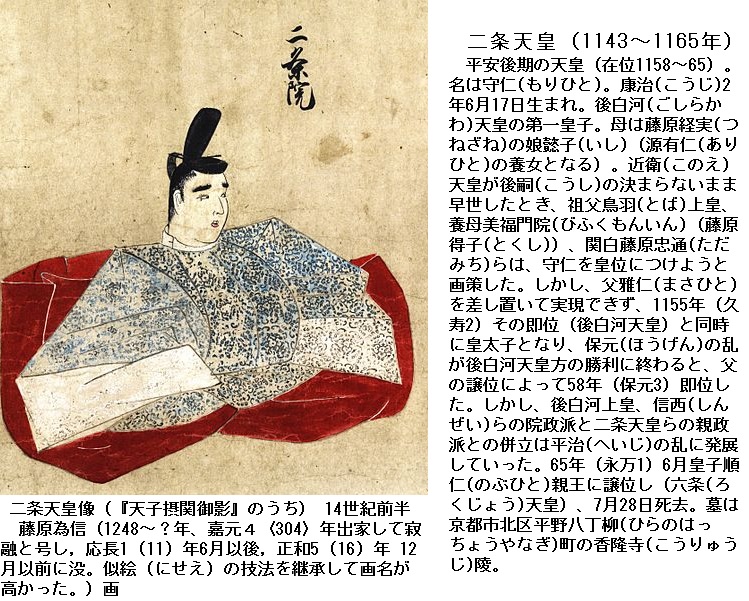 二条院
二条天皇（1143～1165年）
平安後期の天皇（在位1158～65）。
名は守仁(もりひと)。康治(こうじ)2
年6月17日生まれ。後白河(ごしらか
わ)天皇の第一皇子。母は藤原経実(つ
ねざね)の娘懿子(いし)（源有仁(あり
ひと)の養女となる）。近衛(このえ)
天皇が後嗣(こうし)の決まらないまま
早世したとき、祖父鳥羽(とば)上皇、
養母美福門院(びふくもんいん)（藤原
得子(とくし)）、関白藤原忠通(ただ
みち)らは、守仁を皇位につけようと
画策した。しかし、父雅仁(まさひと)
を差し置いて実現できず、1155年（久
寿2）その即位（後白河天皇）と同時
に皇太子となり、保元((ほうげん)の乱
が後白河天皇方の勝利に終わると、父
の譲位によって58年（保元3）即位し
た。しかし、後白河上皇、信西(しん
ぜい)らの院政派と二条天皇らの親政
派との併立は平治(へいじ)の乱に発展
していった。65年（永万1）6月皇子順
仁(のぶひと)親王に譲位し（六条(ろ
くじょう)天皇）、7月28日死去。墓は
京都市北区平野八丁柳(ひらのはっ
ちょうやなぎ)町の香隆寺(こうりゅう
じ)陵。
二条天皇像（『天子摂関御影』のうち） 14世紀前半
藤原為信（1248～？年、嘉元４〈304〉年出家して寂
融と号し，応長1（11）年6月以後，正和5（16）年 12
月以前に没。似絵（にせえ）の技法を継承して画名が
高かった。）画